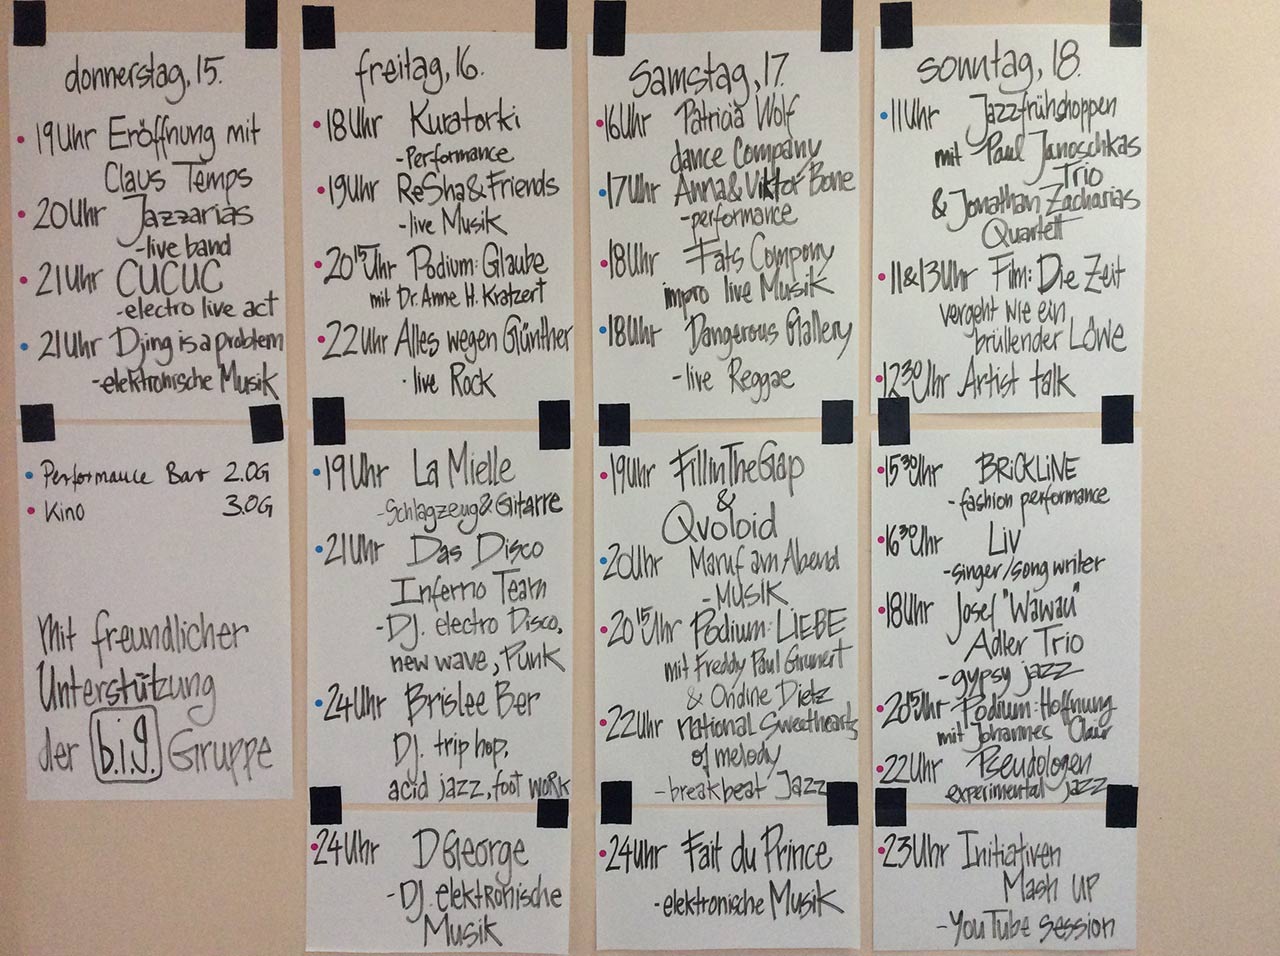 donnerstag, 15.
• 19Uhr Eröffnung mit
Claus Temps
• 20Uhr Jazzarias
-live band
• 21Uhr CUCUC
-electro live act
• 21Uhr Djing is a problem
-elektronische Musik
• Performance Bar 2.OG
• Kino 3.OG
Mit freundlicher
Unterstützung
der b.i.g. Gruppe
freitag, 16.
• 18Uhr Kuratorki
-Performance
• 19Uhr ReSha & Friends
-live Musik
• 20 15 Uhr Podium: Glaube
mit Dr. Anne H. Kratzert
• 22Uhr Alles wegen Günther
· live Rock
• 19Uhr La Mielle
-Schlagzeug & Gitarre
• 21Uhr Das Disco
Inferno Team
-DJ. electro Disco,
new wave, Punk
• 24Uhr Brislee Ber
DJ. trip hop,
acid jazz, foot work
• 24Uhr D George
-DJ. elektronische
Musik
Samstag, 17.
• 16Uhr Patricia Wolf
dance Company
• 17Uhr Anna & Viktor Bone
-performance
• 18Uhr Fats Company
impro live Musik
• 18Uhr Dangerous Gallery
-live Reggae
• 19Uhr FillinTheGap
&
Qvoloid
• 20Uhr Maruf am Abend
-Musik
• 20 15 Uhr Podium: LIEBE
mit Freddy Paul Grunert
& Ondine Dietz
• 22Uhr national Sweethearts
of melody
-breakbeat Jazz
• 24Uhr Fait du Prince
-elektronische Musik
sonntag, 18.
• 11Uhr Jazzfrühshoppen
mit Paul Janoschkas
Trio
& Jonathan Zacharias
Quartett
• 11&13Uhr Film: Die Zeit
vergeht wie ein
brüllender Löwe
• 12 30 Uhr Artist talk
• 15 30 Uhr BRICKLiNE
-fashion performance
• 16 30 Uhr Liv
-singer/song writer
• 18Uhr Josef "Wawau"
Adler Trio
-gypsy jazz
• 20 15 Uhr Podium: Hoffnung
mit Johannes
• 22Uhr Pseudologen
experimental jazz
• 23Uhr Initiativen
Mash UP
-YouTube session